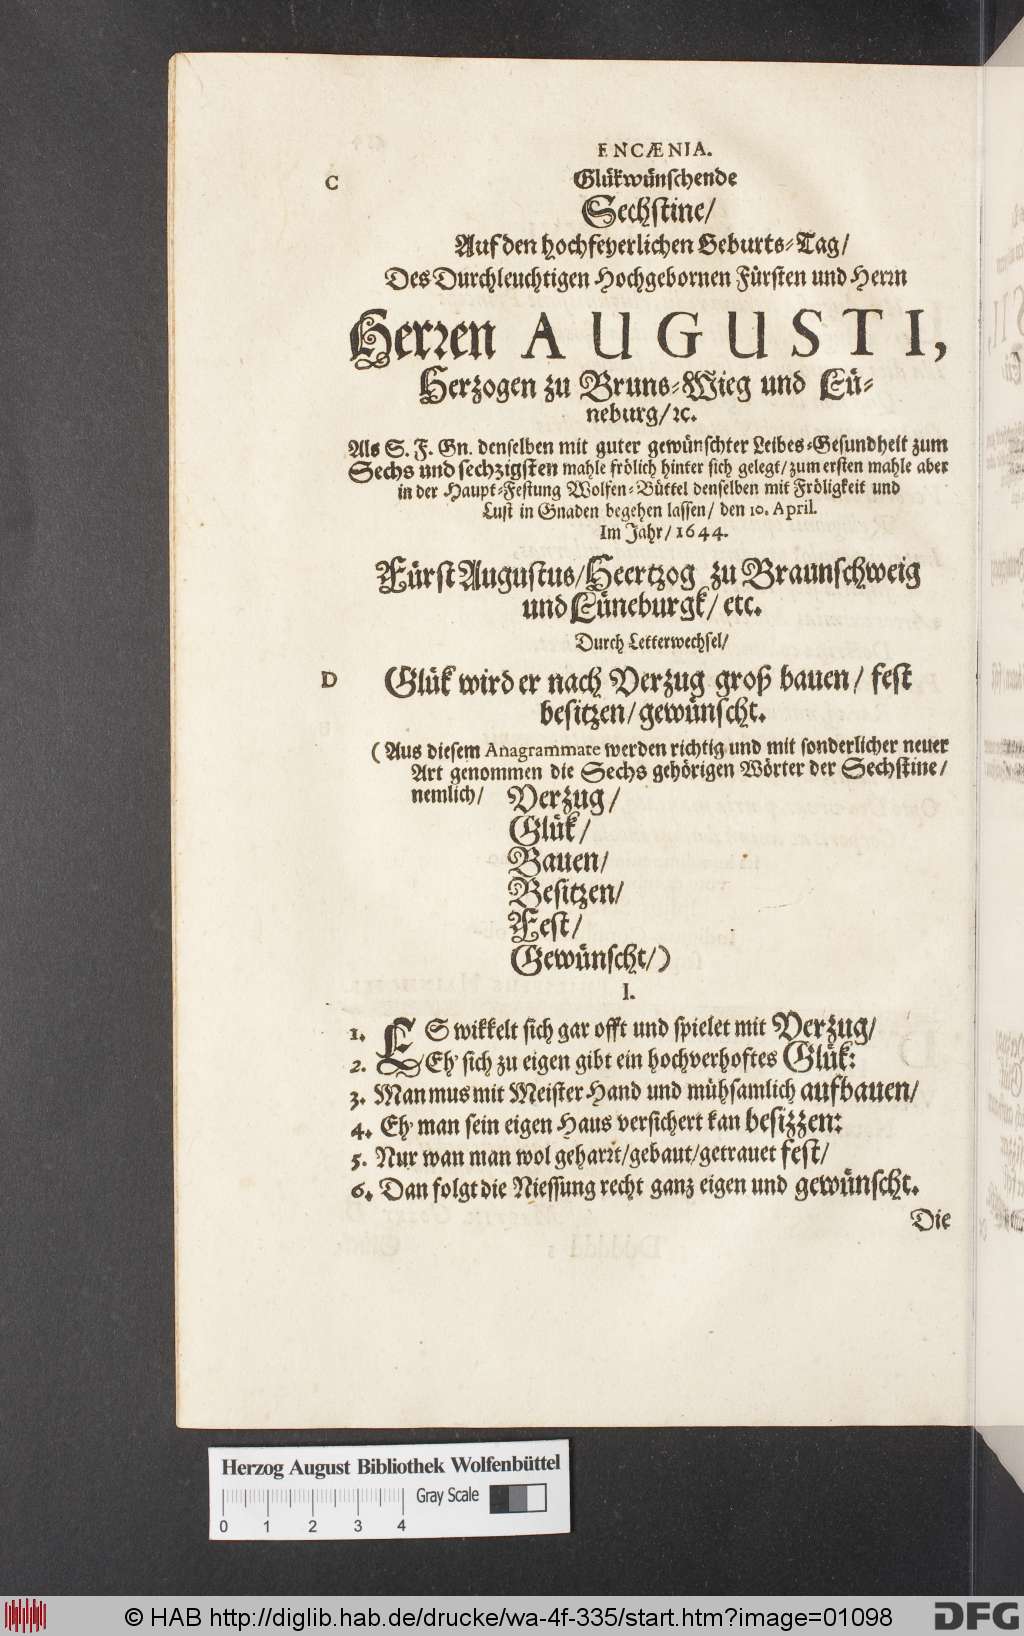 ENCÆNIA.
C
Glükwünschende
Sechstine/
Auf den hochfeyerlichen Geburts-Tag/
Des Durchleuchtigen Hochgebornen Fürsten und Herrn
Herren AUGUSTI,
Herzogen zu Bruns-Wieg und Lü-
neburg/ ꝛc.
Als S. F. Gn. denselben mit guter gewünschter Leibes-Gesundheit zum
Sechs und sechzigsten mahle frölich hinter sich gelegt/ zum ersten mahle aber
in der Haupt-Festung Wolfen-Büttel denselben mit Fröligkeit und
Lust in Gnaden begehen lassen/ den 10. April.
Im Jahr/ 1644.
Fürst Augustus/ Heertzog zu Braunschweig
und Lüneburgk/ etc.
Durch Letterwechsel/
D
Glük wird er nach Verzug groß bauen/ fest
besitzen/ gewünscht.
(Aus diesem Anagrammate werden richtig und mit sonderlicher neuer
Art genommen die Sechs gehörigen Wörter der Sechstine/
nemlich/ Verzug/
Glük/
Bauen/
Besitzen/
Fest/
Gewünscht/)
I.
1. ES wikkelt sich gar offt und spielet mit Verzug/
2. Eh' sich zu eigen gibt ein hochverhoftes Glük:
3. Man mus mit Meister-Hand und mühsamlich aufbauen/
4. Eh' man sein eigen Haus versichert kan besizzen:
5. Nur wan man wol geharrt/ gebaut/ getrauet fest/
6. Dan folgt die Niessung recht ganz eigen und gewünscht.
Die
Herzog August Bibliothek Wolfenbüttel
Gray Scale
0 1 2 3 4
© HAB http://diglib.hab.de/drucke/wa-4f-335/start.htm?image=01098
DFG